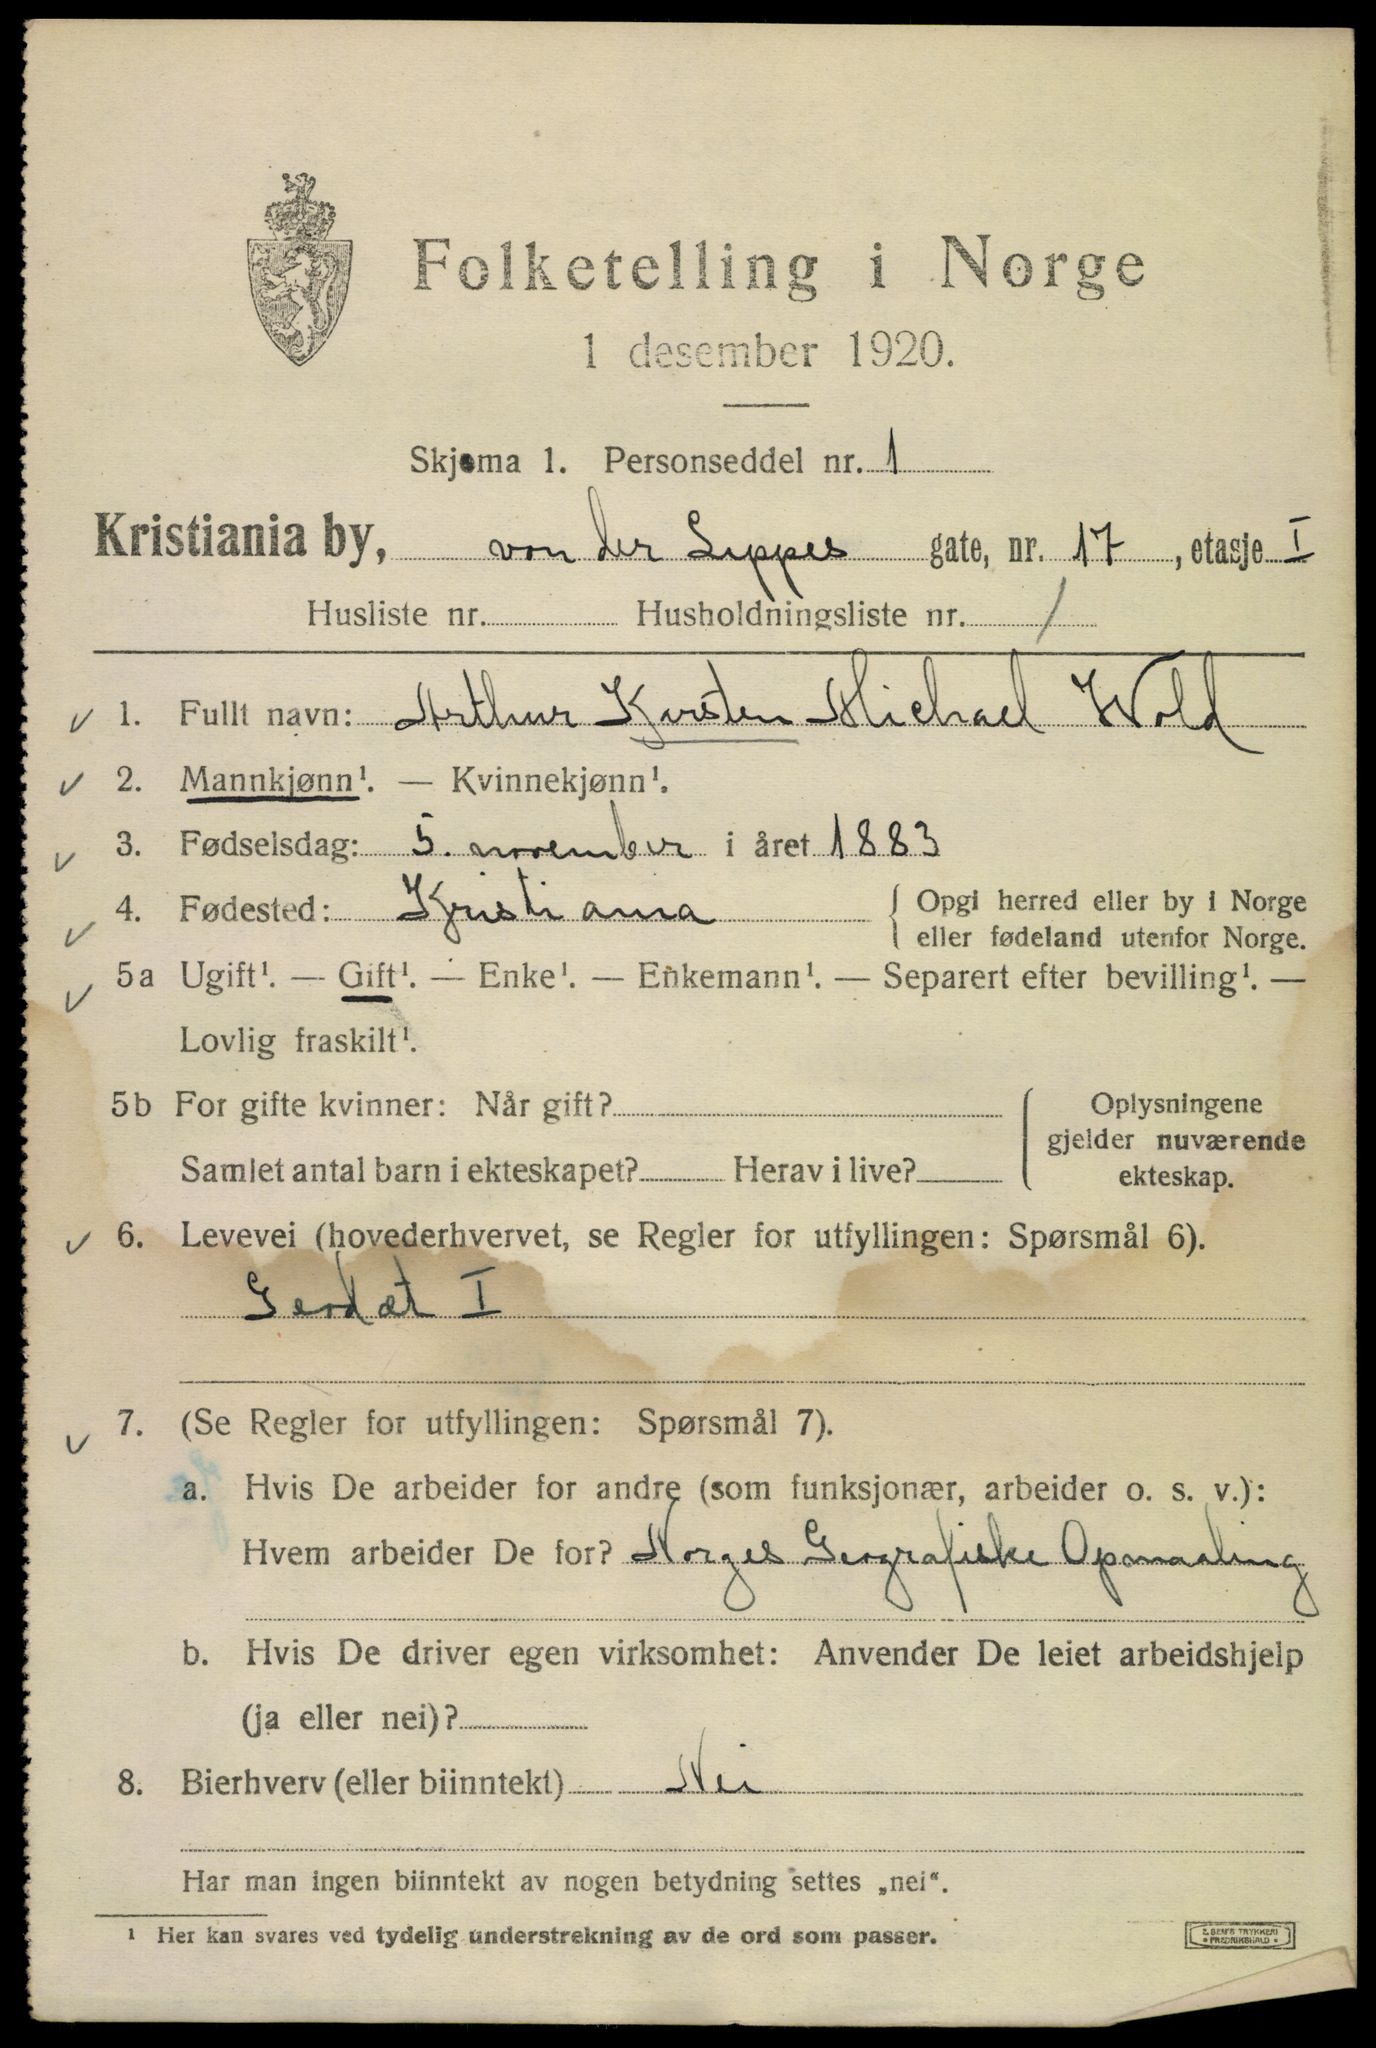 Folketelling i Norge
1 desember 1920.
Skjema 1. Personseddel nr. 1
Kristiania by, von der Lippes gate, nr. 17, etasje I
Husliste nr. Husholdningsliste nr. 1
✓ 1. Fullt navn: Arthur Karsten Michael Wold
✓ 2. Mannkjønn¹. — Kvinnekjønn¹.
✓ 3. Fødselsdag: 5. november i året 1883
✓ 4. Fødested: Kristiania { Opgi herred eller by i Norge
eller fødeland utenfor Norge.
✓ 5a Ugift¹. — Gift¹. — Enke¹. — Enkemann¹. — Separert efter bevilling¹. —
Lovlig fraskilt¹.
5b For gifte kvinner: Når gift? { Oplysningene
gjelder nuværende
Samlet antal barn i ekteskapet? Herav i live? ekteskap.
✓ 6. Levevei (hovederhvervet, se Regler for utfyllingen: Spørsmål 6).
Geodæt I
✓ 7. (Se Regler for utfyllingen: Spørsmål 7).
a. Hvis De arbeider for andre (som funksjonær, arbeider o. s. v.):
Hvem arbeider De for? Norges Geografiske Opmaaling
b. Hvis De driver egen virksomhet: Anvender De leiet arbeidshjelp
(ja eller nei)?
8. Bierhverv (eller biinntekt) Nei
Har man ingen biinntekt av nogen betydning settes „nei“.
¹ Her kan svares ved tydelig understrekning av de ord som passer.
TRYKKERI
FREDRIKSHALD